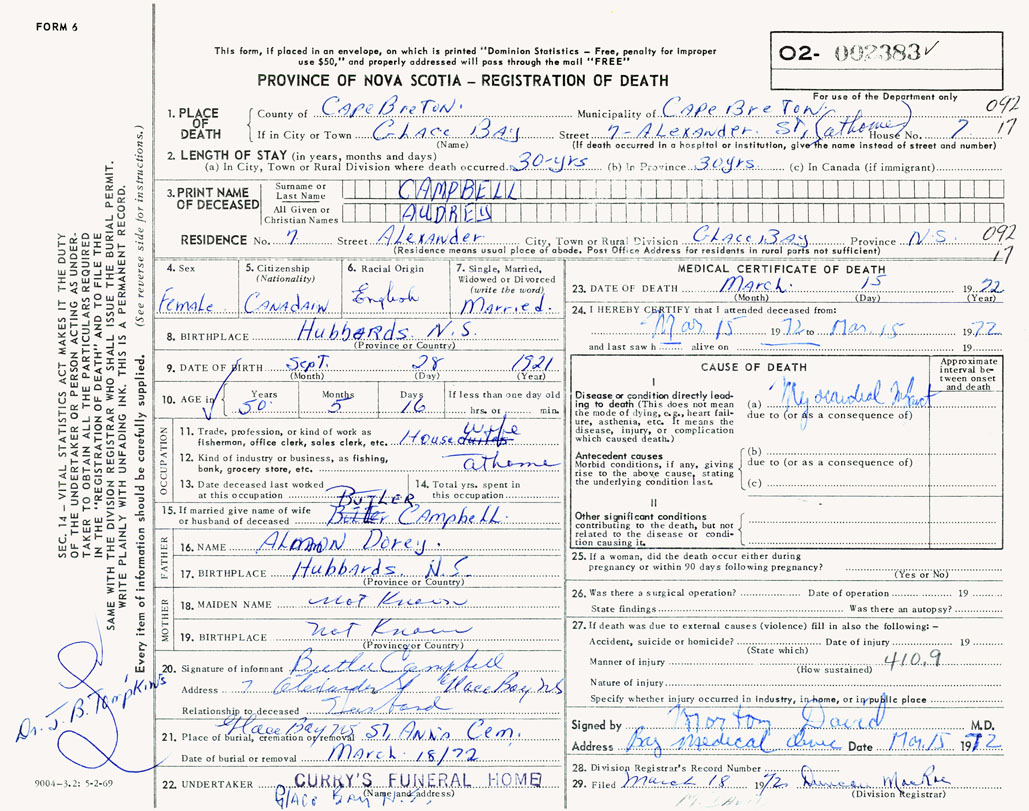 FORM 6
This form, if placed in an envelope, on which is printed "Dominion Statistics – Free, penalty for improper
use $50," and properly addressed will pass through the mail "FREE"
O2- 002383
PROVINCE OF NOVA SCOTIA – REGISTRATION OF DEATH
For use of the Department only
1. PLACE OF DEATH County of CAPE BRETON. Municipality of CAPE BRETON. 092
If in City or Town GLACE BAY Street 7-ALEXANDER. ST, (athome) House No. 7 17
(Name) (If death occurred in a hospital or institution, give the name instead of street and number)
2. LENGTH OF STAY (in years, months and days)
(a) In City, Town or Rural Division where death occurred 30-yrs (b) In Province 30yrs (c) In Canada (if immigrant)
3. PRINT NAME OF DECEASED Surname or Last Name CAMPBELL
All Given or Christian Names AUDREY
RESIDENCE No. 7 Street Alexander City, Town or Rural Division GLACE BAY Province N.S. 092
(Residence means usual place of abode. Post Office Address for residents in rural parts not sufficient) 17
4. Sex Female
5. Citizenship (Nationality) CANADAIN
6. Racial Origin English
7. Single, Married, Widowed or Divorced (write the word) Married.
8. BIRTHPLACE Hubbards. N.S.
(Province or Country)
9. DATE OF BIRTH Sept. 28 1921
(Month) (Day) (Year)
10. AGE in Years Months Days If less than one day old
50 5 16 hrs. or min.
OCCUPATION
11. Trade, profession, or kind of work as
fisherman, office clerk, sales clerk, etc. House wife
12. Kind of industry or business, as fishing,
bank, grocery store, etc. athome
13. Date deceased last worked
at this occupation
14. Total yrs. spent in
this occupation
15. If married give name of wife
or husband of deceased BUTLER Campbell.
FATHER
16. NAME Dorey.
17. BIRTHPLACE Hubbards. N.S.
(Province or Country)
MOTHER
18. MAIDEN NAME not Known
19. BIRTHPLACE not Known
(Province or Country)
20. Signature of informant Butler Campbell
Address 7 Alexander St Glace Bay NS
Relationship to deceased Husband
21. Place of burial, cremation or removal Glace Bay NS ST. Ann's Cem.
Date of burial or removal March 18/72
22. UNDERTAKER CURRY'S FUNERAL HOME
(Name and address)
Glace Bay N.S.
MEDICAL CERTIFICATE OF DEATH
23. DATE OF DEATH March 15 1972
(Month) (Day) (Year)
24. I HEREBY CERTIFY that I attended deceased from:
Mar 15 1972 to Mar. 15 1972
and last saw h alive on 19
CAUSE OF DEATH
Approximate interval between onset and death
I
Disease or condition directly leading to death (This does not mean the mode of dying, e.g., heart failure, asthenia, etc. It means the disease, injury, or complication which caused death.)
(a) Myocardial Infarct
due to (or as a consequence of)
Antecedent causes
Morbid conditions, if any, giving rise to the above cause, stating the underlying condition last.
(b)
due to (or as a consequence of)
(c)
II
Other significant conditions
contributing to the death, but not related to the disease or condition causing it.
25. If a woman, did the death occur either during
pregnancy or within 90 days following pregnancy?
(Yes or No)
26. Was there a surgical operation? Date of operation 19
State findings Was there an autopsy?
27. If death was due to external causes (violence) fill in also the following: –
Accident, suicide or homicide? Date of injury 19
(State which)
Manner of injury 410.9
(How sustained)
Nature of injury
Specify whether injury occurred in industry, in home, or in public place
Signed by Morton David M.D.
Address Bay Medical Clinic Date Mar. 15 1972
28. Division Registrar's Record Number
29. Filed March 18 1972 Duncan MacRae
(Division Registrar)
SEC. 14 – VITAL STATISTICS ACT MAKES IT THE DUTY
OF THE UNDERTAKER OR PERSON ACTING AS UNDER-
TAKER TO OBTAIN ALL THE PARTICULARS REQUIRED
IN THE "REGISTRATION OF DEATH" AND FILE THE
SAME WITH THE DIVISION REGISTRAR WHO SHALL ISSUE THE BURIAL PERMIT.
WRITE PLAINLY WITH UNFADING INK. THIS IS A PERMANENT RECORD.
Every item of information should be carefully supplied. (See reverse side for instructions.)
Dr. J. B. Tompkins
9004–3.2: 5-2-69